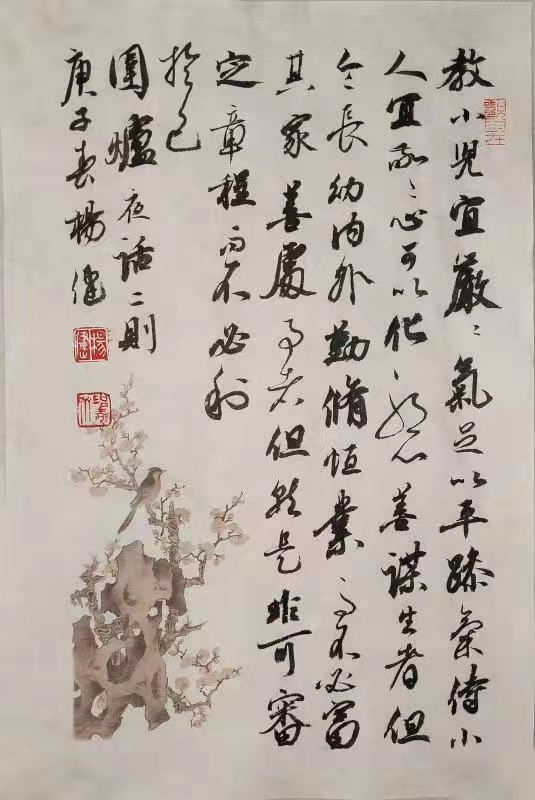 教小兒宜嚴〻氣足以平躁氣待小
人宜敬〻心可以化邪心善謀生者但
令長幼内外勤脩恒業而不必富
其家善處事者但就是非可審
定章程而不必利
於己
圍爐夜話二則
庚子春楊健